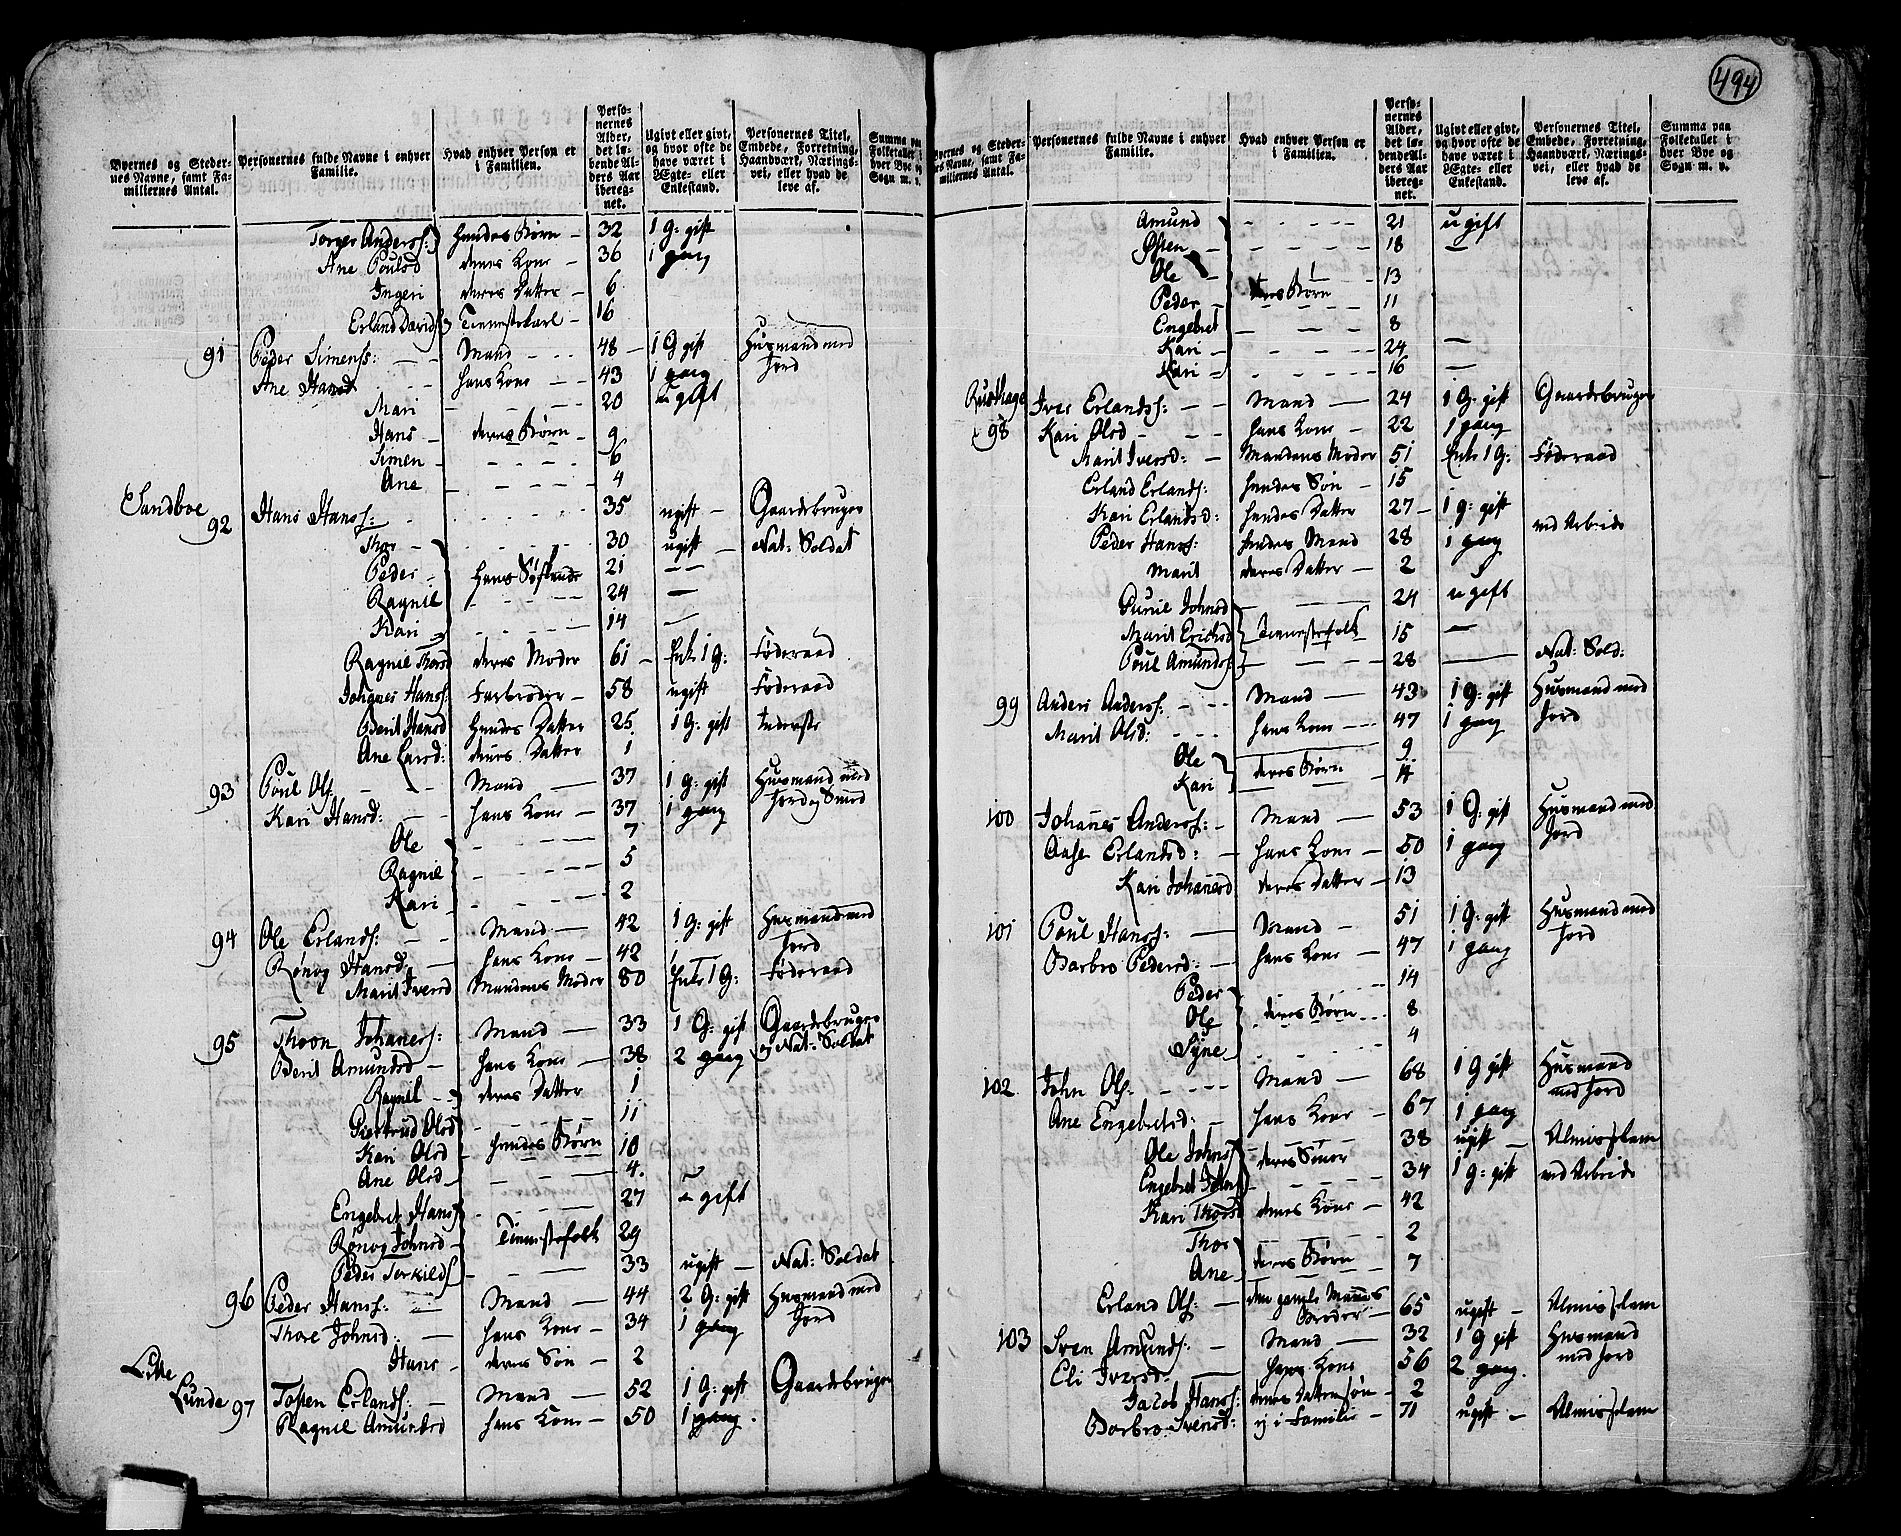 494
Byernes og Stedernes Navne, samt Familiernes Antal.
Personernes fulde Navne i enhver Familie.
Hvad enhver Person er i Familien.
Personernes Alder, det løbende Alders Aar iberegnet.
Ugivt eller givt, og hvor ofte de have været i Ægte- eller Enkestand.
Personernes Titel, Embede, Forretning, Haandværk, Næringsvei, eller hvad de leve af.
Summa paa Folketallet i hver Bye og Sogn m. v.
Torger Anderss: hendes Børn 32 1 G: gift
Ane Poulsd deres Kone 36 1 gang
Ingeri deres Datter 6
Erland Davids Tienestekarl 16
91 Peder Simenss: Mand 48 1 G gift Husmand med Jord
Ane Hansd hans Kone 43 1 gang
Mari 20 ugift
Hans deres Børn 9
Simen 6
Ane 4
Sandboe
92 Hans Hanss: 35 ugift Gaardebruger
Thor 30 ugift Nat: Soldat
Peder hans Søskende 21 —
Ragnil 24 —
Kari 14 —
Ragnil Thorsd deres Moder 61 Enke 1 G: Føderaad
Johannes Hanss: Farbroder 58 ugift Føderaad
Berit Hansd hendes Datter 25 1 G: gift Inderste
Ane Larsd: deres Datter 1
93 Poul Ols: Mand 37 1 g: gift Husmand med Jord og Smed
Kari Hansd: hans Kone 37 1 gang
Ole 7
Ragnil 5
Kari 2
94 Ole Erlands: Mand 42 1 G: gift Husmand med Jord
Rønog Hansd hans Kone 42 1 —
Marit Iversd Mandens Moder 80 Enke 1 G: Føderaad
95 Thoon Johaness: Mand 33 1 G: gift Gaardebruger og Nat: Soldat
Berit Amundsd hans Kone 38 2 gang
Ragnil deres Datter 1
Giertrud Olsd 11
Kari Olsd hendes Børn 10
Ane Olsd 4
Engebret Hanss 27 ugift
Rønog Johnsd Tienestefolk 29
Peder Torkilds 33 ugift Nat: Soldat
96 Peder Hanss: Mand 44 2 G: gift Husmand med Jord
Thore Johnsd: hans Kone 34 1 gang
Hans deres Søn 2
Lille Lunde
97 Tosten Erlands: Mand 52 1 G: gift Gaardebruger
Ragnil Amundsd hans Kone 50 1 gang.
Byernes og Stedernes Navne, samt Familiernes Antal.
Personernes fulde Navne i enhver Familie.
Hvad enhver Person er i Familien.
Personernes Alder, det løbende Alders Aar iberegnet.
Ugivt eller givt, og hvor ofte de have været i Ægte- eller Enkestand.
Personernes Titel, Embede, Forretning, Haandværk, Næringsvei, eller hvad de leve af.
Summa paa Folketallet i hver Bye og Sogn m. v.
Amund 21 ugift
Østen 18 —
Ole 13
Peder deres Børn 11
Engebret 8
Kari 24 —
Kari 16 —
Rusthage
98 Iver Erlandss: Mand 24 1 G: gift Gaardebruger
Kari Olsd hans Kone 22 1 gang
Marit Iversd: Mandens Moder 51 Enke 1 G: Føderaad
Erland Erlands: hendes Søn 15
Kari Erlandsd: hendes Datter 27 1 g: gift
Peder Hanss: hendes Mand 28 1 gang ved Arbeide
Marit deres Datter 2
Gunil Johnsd 24 ugift
Marit Erichsd Tienestefolk 15 —
Poul Amundss 28 — Nat: Sold:
99 Anders Anderss: Mand 43 1 G: gift Husmand med Jord
Marit Olsd: hans Kone 47 1 gang
Ole deres Børn 9
Kari 4
100 Johannes Anderss: Mand 53 1 G: gift Husmand med Jord
Aase Erlandsd: hans Kone 50 1 gang
Kari Johanesd deres Datter 13
101 Poul Hanss: Mand 51 1 G: gift Husmand med Jord
Barbro Pedersd: hans Kone 47 1 gang
Peder 14
Ole deres Børn 8
Syne 4
102 John Ols: Mand 68 1 G gift Husmand med Jord
Ane Engebretsd: hans Kone 67 1 gang
Ole Johnss deres Sønner 38 ugift Almisselem
Engebret Johns 34 1 G: gift ved Arbeide
Kari Thorsd denes Kone 42
Thor 2
Ane deres Børn 7
Erland Ols: den gamle Mands Broder 65 ugift Almisselem
103 Sven Amunds: Mand 32 1 G gift Husmand med Jord
Eli Iversd: hans Kone 56 2 gang.
Jacob Hanss: denes Dattersøn 2
Barbro Svensd: ej i Familie 71 ugift Almisselem